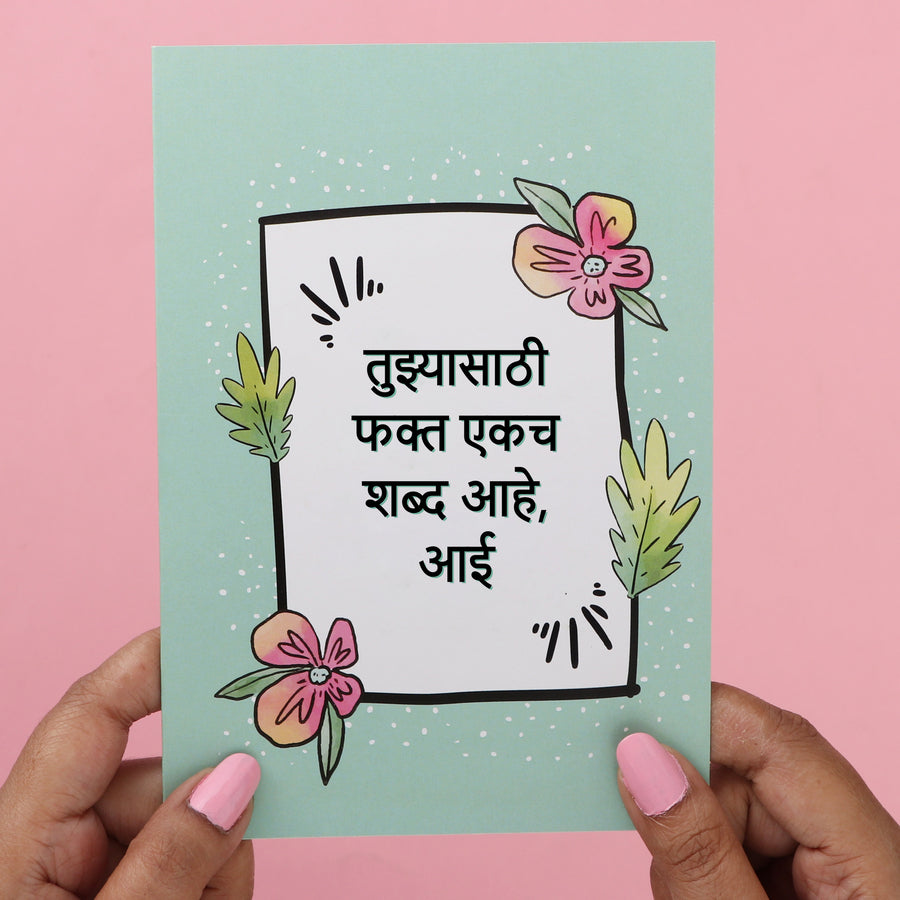 तुझ्यासाठी
फक्त एकच
शब्द आहे,
आई